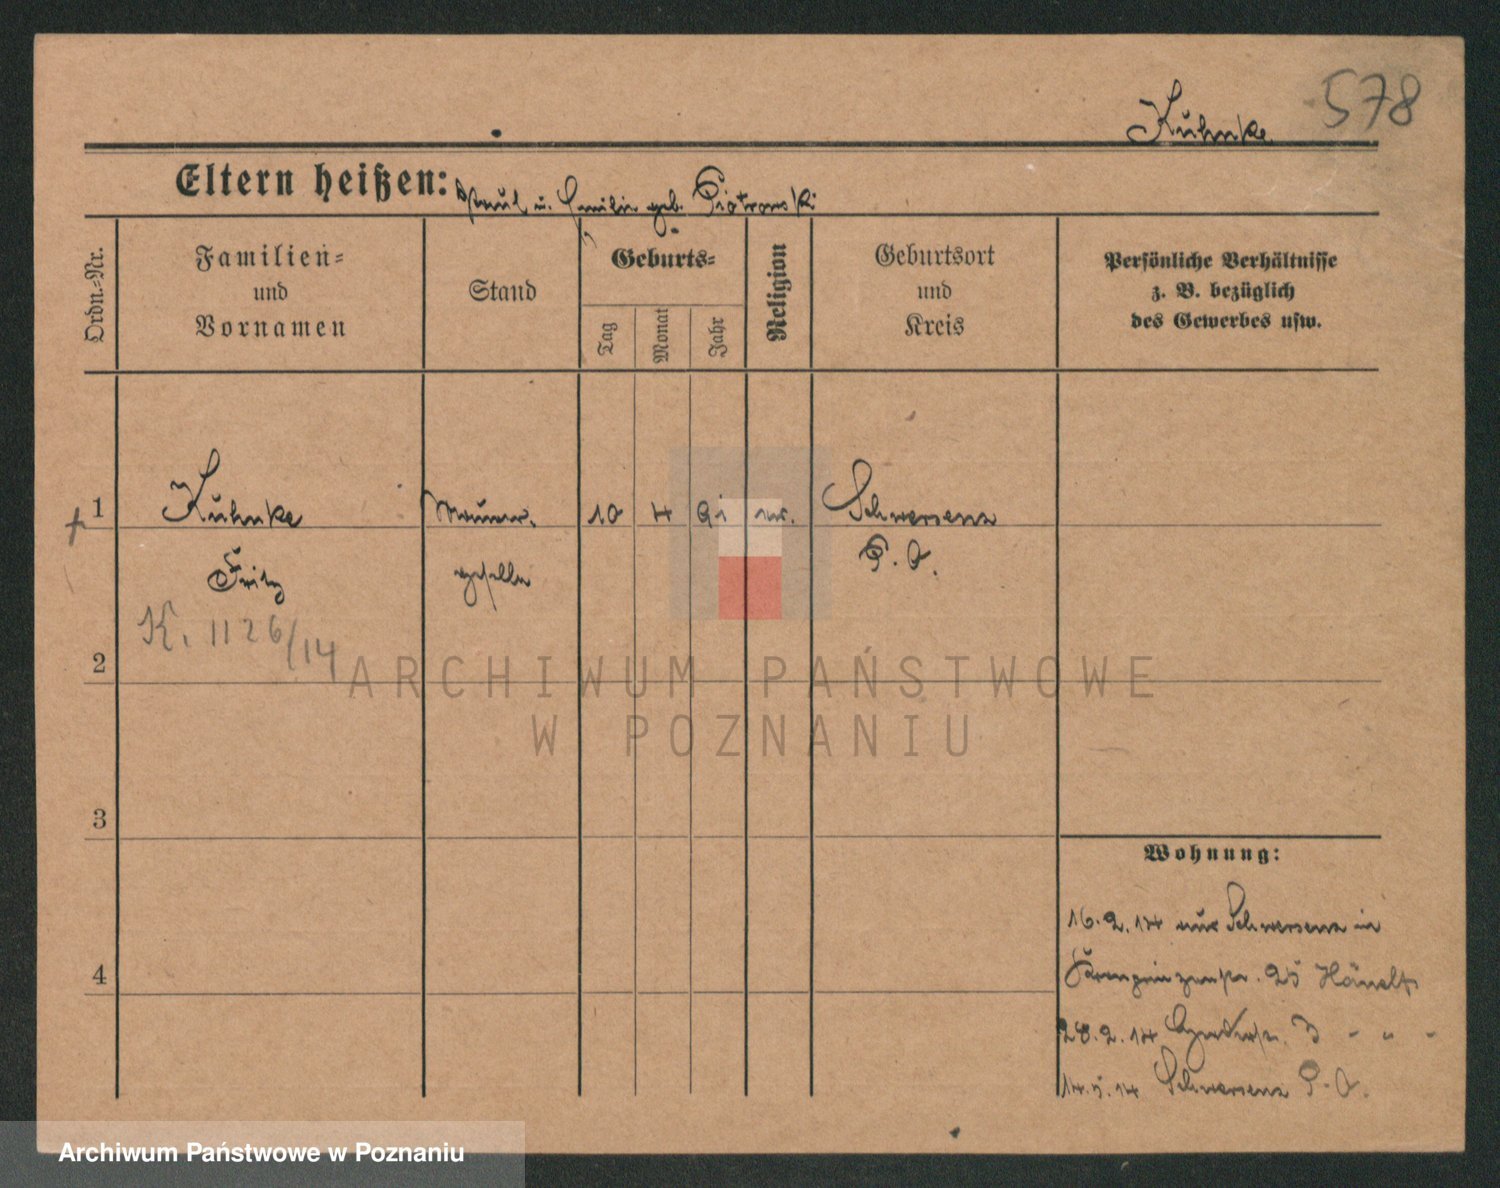 578
Kuhnke
Eltern heißen: Paul u. Emilie geb. Piotrowski
Ordn.-Nr.
Familien-
und
Vornamen
Stand
Geburts-
Tag
Monat
Jahr
Religion
Geburtsort
und
Kreis
Persönliche Verhältnisse
z. B. bezüglich
des Gewerbes usw.
1 Kuhnke Maurer- 10 4 91 Schwersenz
Fritz geselle P. O.
K. 1126/14
2
3
4
Wohnung:
16.2.14 aus Schwersenz in
25
28.2.14 3 - " -
14.5.14 Schwersenz P. O.
ARCHIWUM PAŃSTWOWE
W POZNANIU
Archiwum Państwowe w Poznaniu